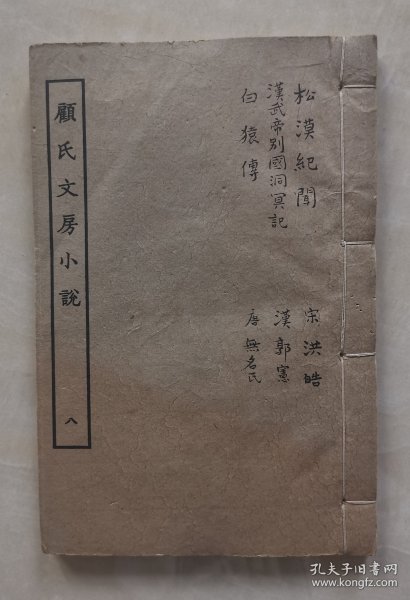 松漠紀聞 宋洪皓
漢武帝別國洞冥記 漢郭憲
白猿傳 唐無名氏
顧氏文房小說 八
孔夫子旧书网
https://www.kongfz.com